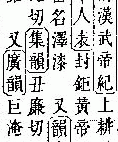 漢武帝紀上耕
人袁封鉅黃帝
名澤漆又韻
切集韻丑廉切
又廣韻巨淹